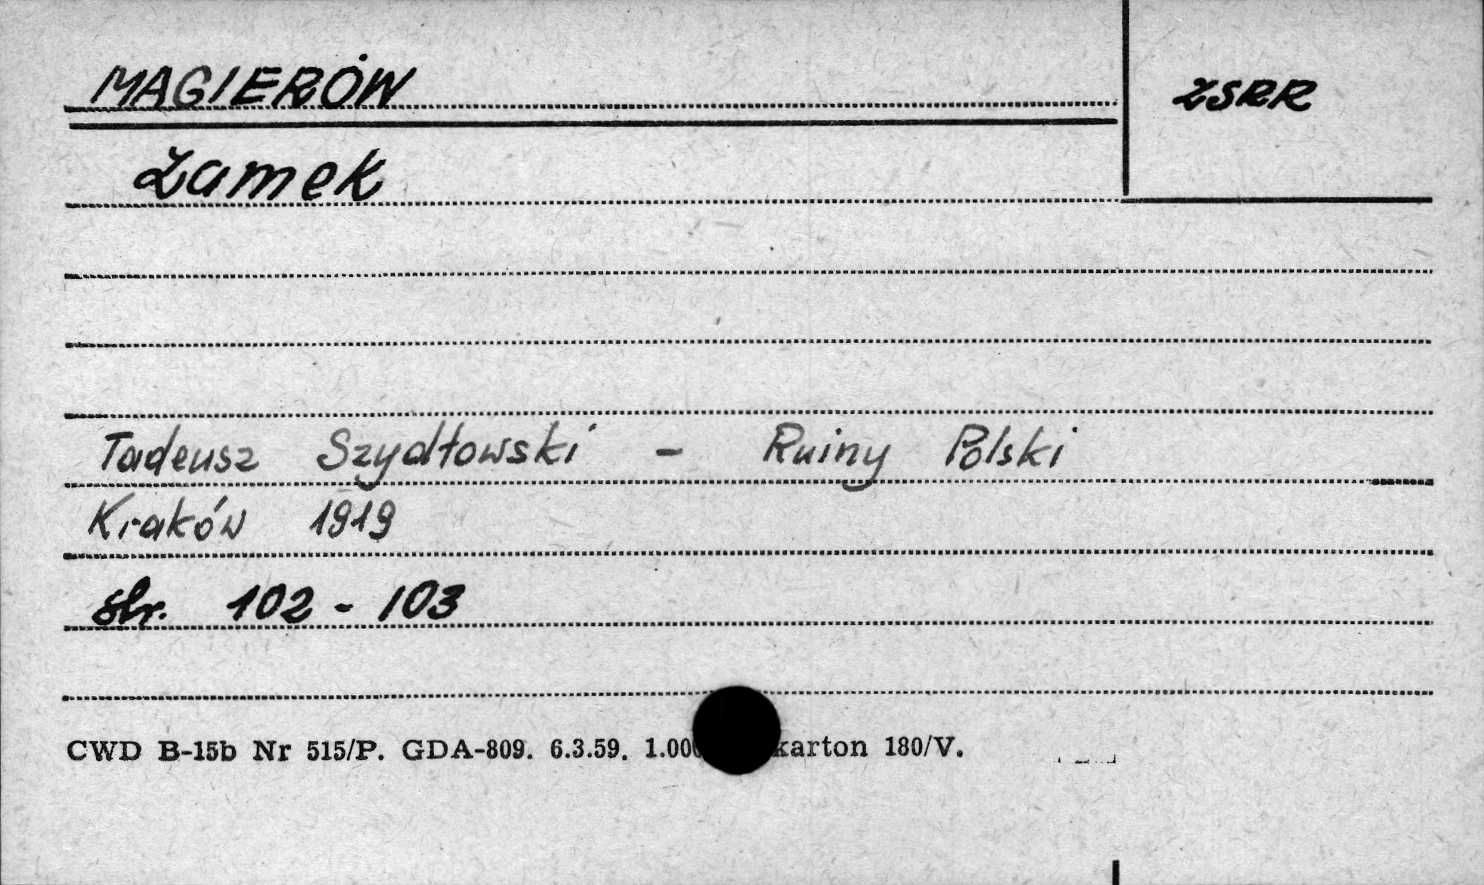 MAGIERÓW
ZSRR
Zamek
Tadeusz Szydłowski - Ruiny Polski
Kraków 1919
str. 102 - 103
CWD B-15b Nr 515/P. GDA-809. 6.3.59. karton 180/V.